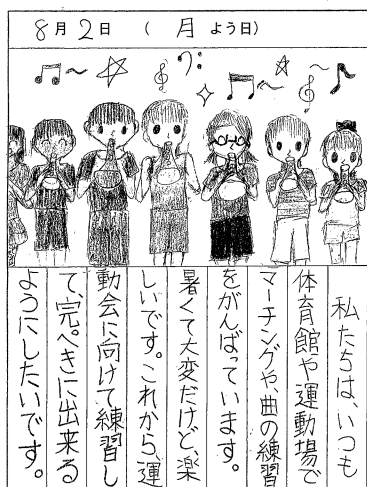 8月2日 (月よう日)
私たちは、いつも
体育館や運動場で
マーチングや、曲の練習
をがんばっています。
暑くて大変だけど、楽
しいです。これから、運
動会に向けて練習し
て、完ぺきに出来る
ようにしたいです。